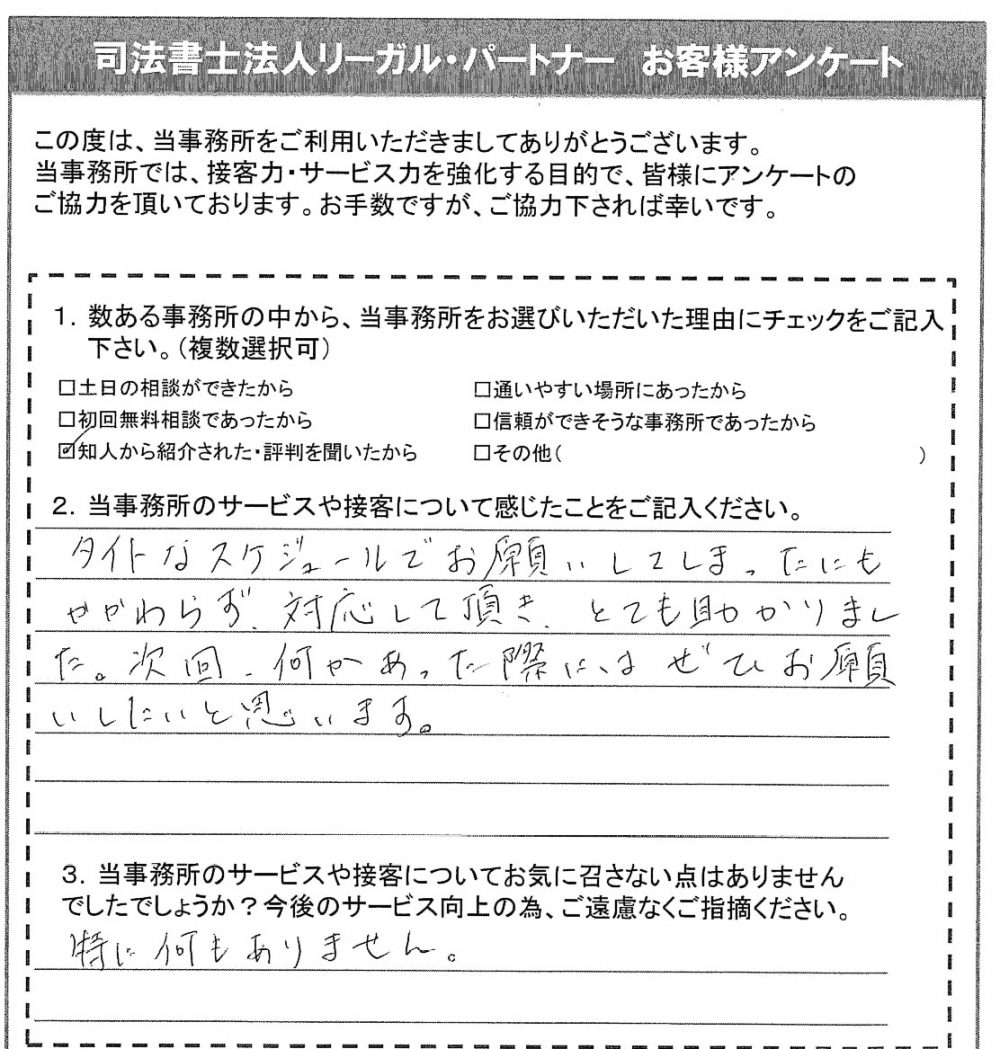 司法書士法人リーガル・パートナー お客様アンケート
この度は、当事務所をご利用いただきましてありがとうございます。
当事務所では、接客力・サービス力を強化する目的で、皆様にアンケートの
ご協力を頂いております。お手数ですが、ご協力下されば幸いです。
1. 数ある事務所の中から、当事務所をお選びいただいた理由にチェックをご記入
下さい。(複数選択可)
□土日の相談ができたから □通いやすい場所にあったから
□初回無料相談であったから □信頼ができそうな事務所であったから
☑知人から紹介された・評判を聞いたから □その他( )
2. 当事務所のサービスや接客について感じたことをご記入ください。
タイトなスケジュールでお願いしてしまったにも
かかわらず、対応して頂き、とても助かりまし
た。次回、何かあった際にはぜひお願
いしたいと思います。
3. 当事務所のサービスや接客についてお気に召さない点はありません
でしたでしょうか?今後のサービス向上の為、ご遠慮なくご指摘ください。
特に何もありません。